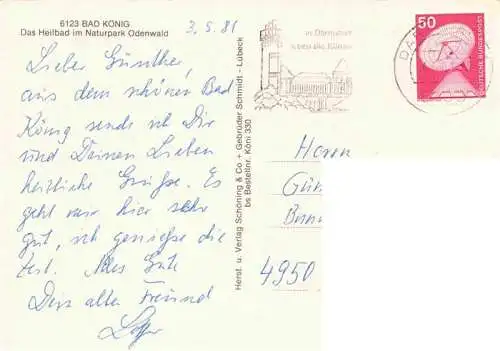 6123 BAD KÖNIG
Das Heilbad im Naturpark Odenwald
3.5.81
Lieber Günther,
aus dem schönen Bad
König sende ich Dir
und Deinen Lieben
herzliche Grüße. Es
geht mir hier sehr
gut, ich genieße die
Zeit. Alles Gute
Dein alter Freund
Herst. u. Verlag Schöning & Co + Gebrüder Schmidt - Lübeck
bs Bestellnr. Köni 330
in Darmstadt
leben die Künste
50
DEUTSCHE BUNDESPOST
Herrn
4950